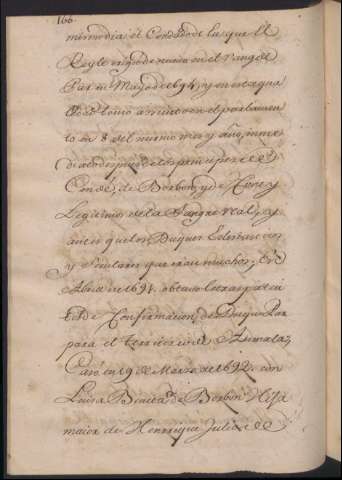 166.
mismo dia, el Condado de la que el
Rey le erigio de nuevo en el rango de
Par en Mayo de 694, y en esta qua
lidad tomo asiento en el parlamen
to en 8 del mismo mes y año, inme
diato despues de los principes de
Condé, de Borbon, y de Conty
Legitimos de la Sangre real, y
antes que los Duques Eclesiasticos
y Seculares que eran muchos; En
Abril de 1694. obtuvo letras patentes
de Confirmacion, de Duque Par
para el territorio de Aumala;
Casó en 19 de Marzo de 1692. con
Louisa Benita de Borbon Hija
maior de Henrrique Julio de